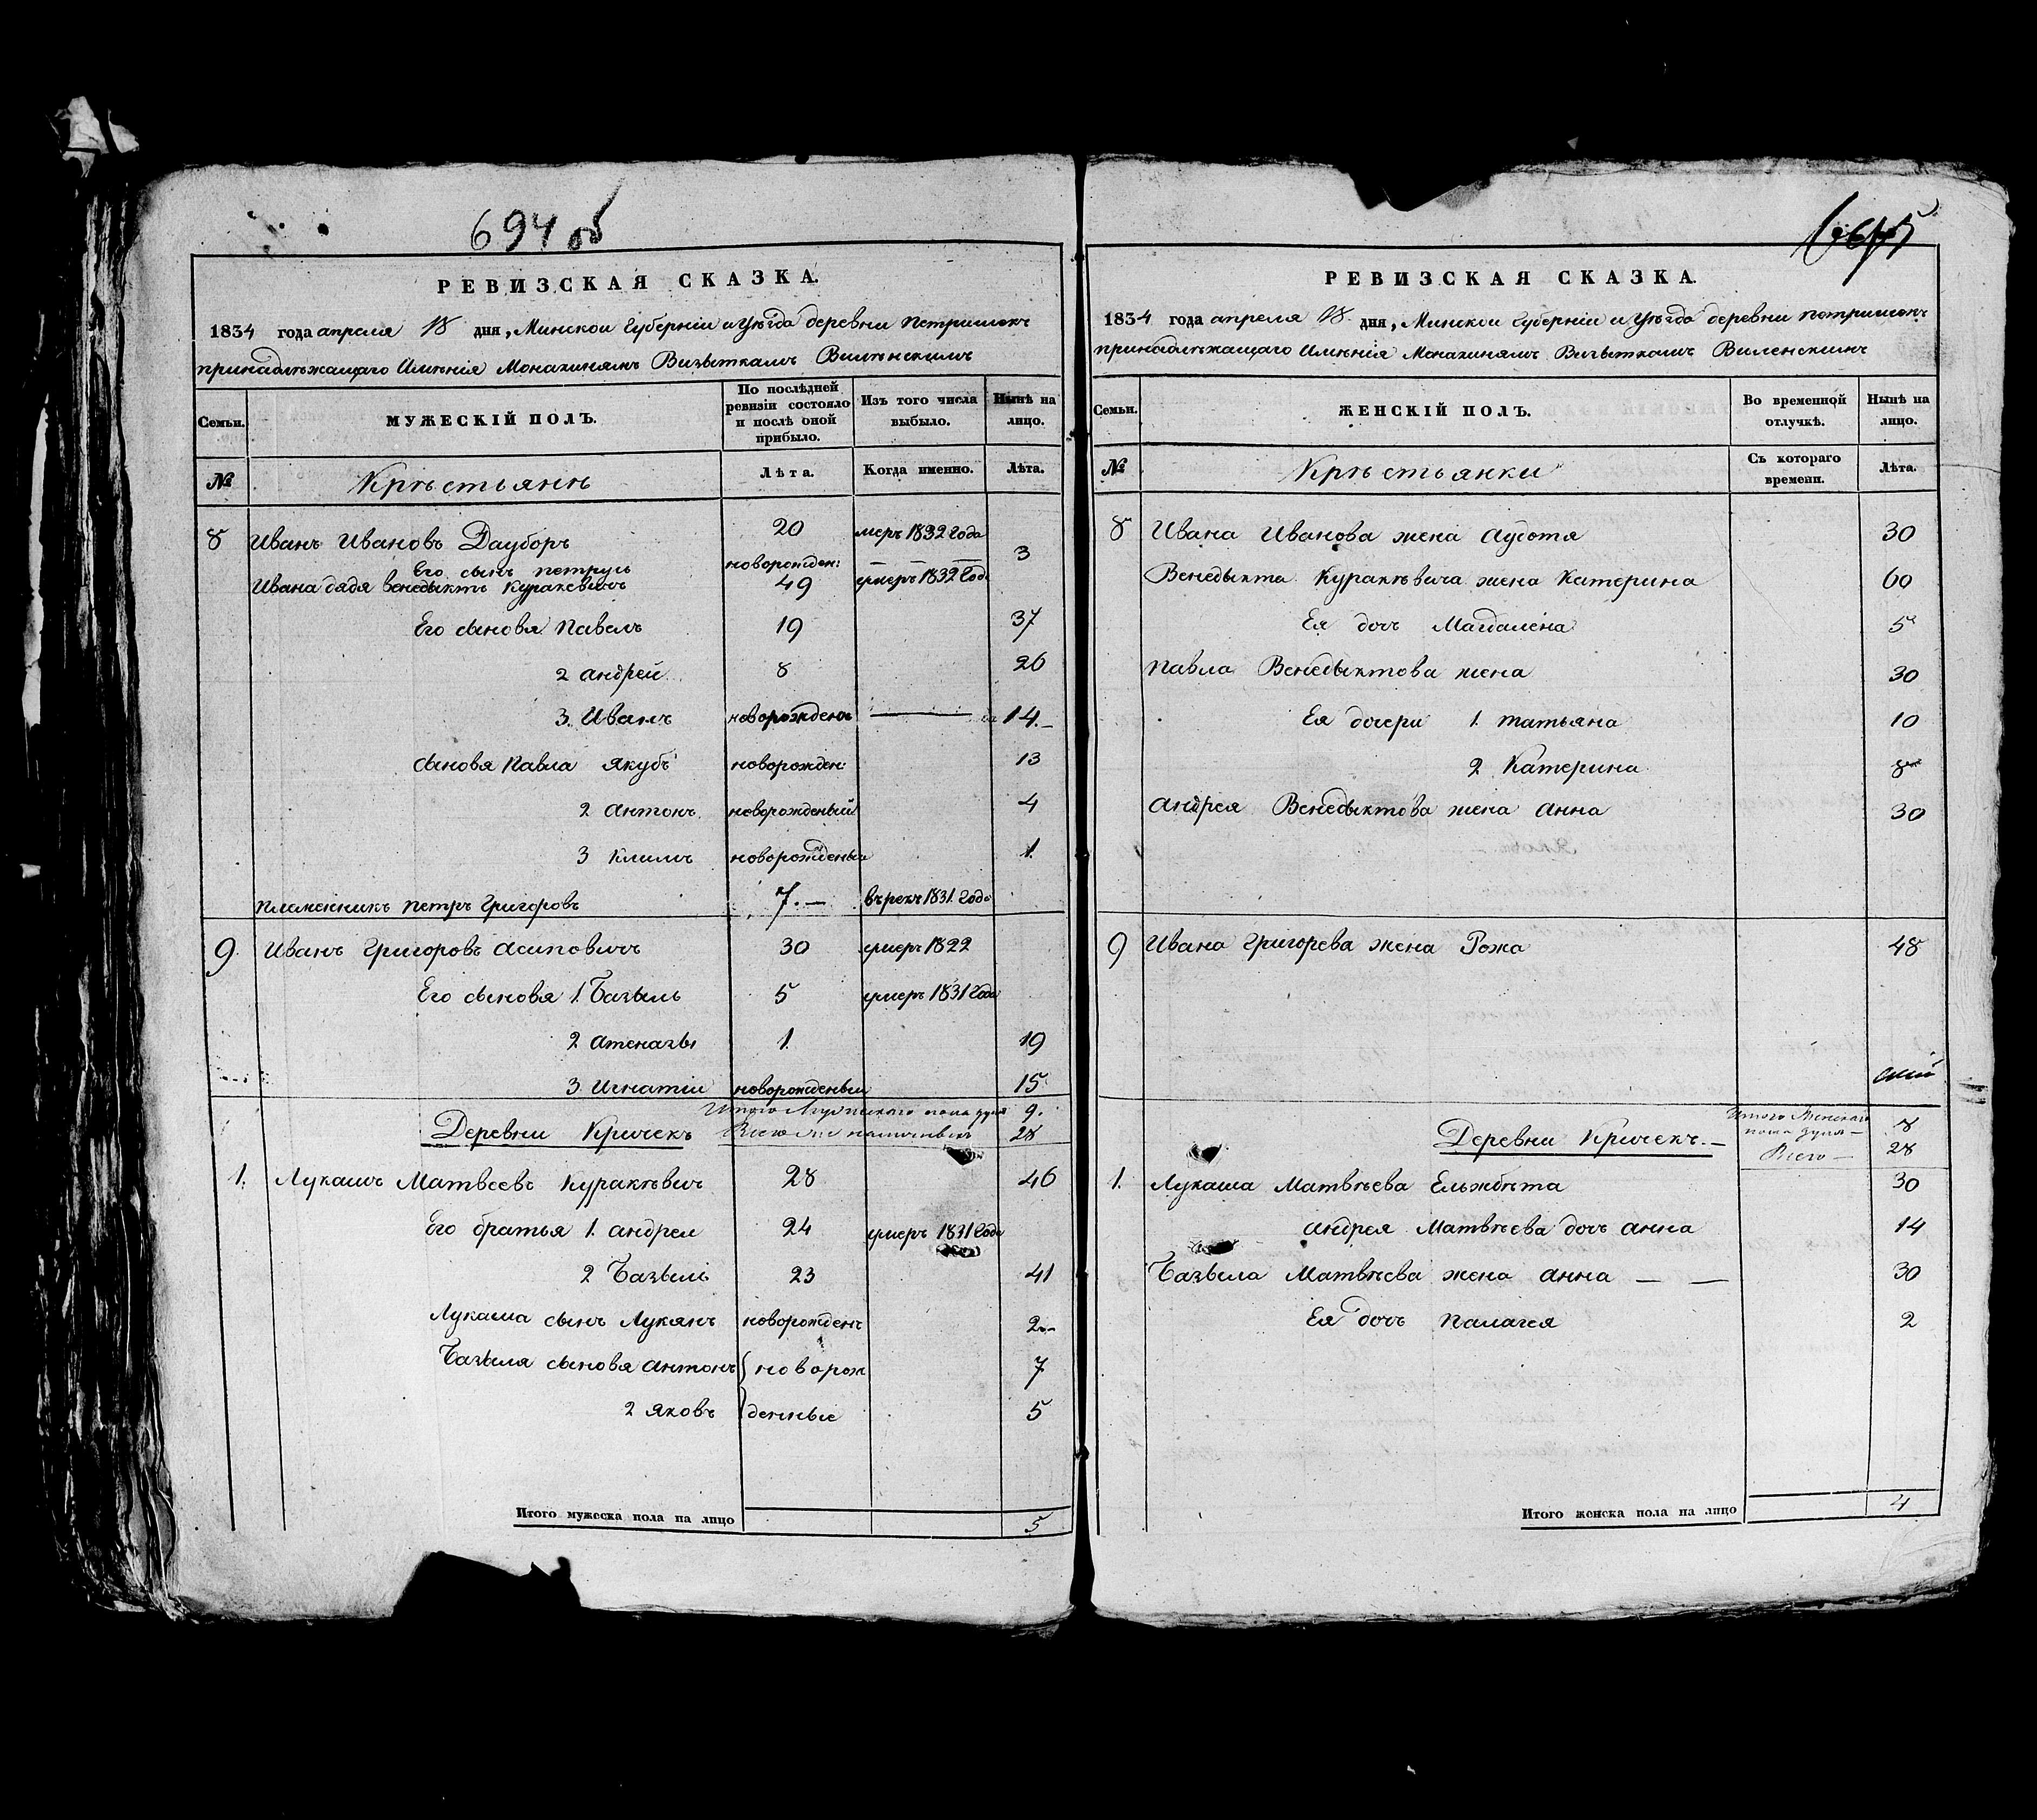 694 об
РЕВИЗСКАЯ СКАЗКА.
1834 года апреля 18 дня, Минской Губерніи и Уѣзда деревни Петришекъ
принадлѣжащаго Имѣнія Монахинямъ Визыткамъ Вилѣнскимъ
Семьи. МУЖЕСКІЙ ПОЛЪ. По послѣдней ревизіи состояло и послѣ оной прибыло. Изъ того числа выбыло. Нынѣ на лицо.
№ Крѣстьянѣ Лѣта. Когда именно. Лѣта.
8 Иванъ Ивановъ Дауборъ 20 умеръ 1832 года
Его сынъ петрусь новорожден: 3
Ивана дядя венедыктъ Куракевичъ 49 умеръ 1832 год.
Его сыновя Павелъ 19 37
2 андрей 8 26
3. Иванъ новорожденъ 14.
сыновя Павла Якубъ новорожден: 13
2 антонъ новорожденый 4
3 Климъ новорожденый 1.
племенникъ петръ григоровъ 7.— върекр 1831 года
9 Иванъ григоровъ асиповичъ 30 умеръ 1822
Его сыновя 1. Базыль 5 умеръ 1831 года
2 атеназы 1. 19
3 Игнатіи новорожденыи 15
Итого Мужескаго пола душъ 9.
Деревни Кричекъ 28
1. Лукашъ Матвеевъ Куракѣвич 28 46
Его братья 1. андреи 24 умеръ 1831 года
2 Базыли 23 41
Лукаша сынъ Лукянъ новорожденъ 2—
Базыля сыновя антонъ новорож 7
2 яковъ денные 5
Итого мужеска пола на лицо 5
РЕВИЗСКАЯ СКАЗКА.
1834 года апреля 18 дня, Минской Губерніи и Уѣзда деревни петришекъ
принадлѣжащаго Имѣнія Монахинямъ Визыткамъ Виленскимъ
Семьи. ЖЕНСКІЙ ПОЛЪ. Во временной отлучкѣ. Нынѣ на лицо.
№ Крѣстьянки Съ котораго времени. Лѣта.
8 Ивана Иванова жена аудотя 30
Венедыкта Куракѣвича жена Катерина 60
Ея дочъ Магдалена 5
павла Венедыктова жена 30
Ея дочери 1. татьяна 10
2 Катерина 8
андрея Венедыктова жена анна 30
9 Ивана григорева жена Рожа 48
Итого Женскаго пола душъ— 8
Деревни Кричекъ.— Всего— 28
1. Лукаша Матвѣева Ельжбѣта 30
андрея Матвѣева дочъ анна 14
Базыла Матвѣева жена анна — — 30
Ея дочъ палагея 2
Итого женска пола на лицо 4